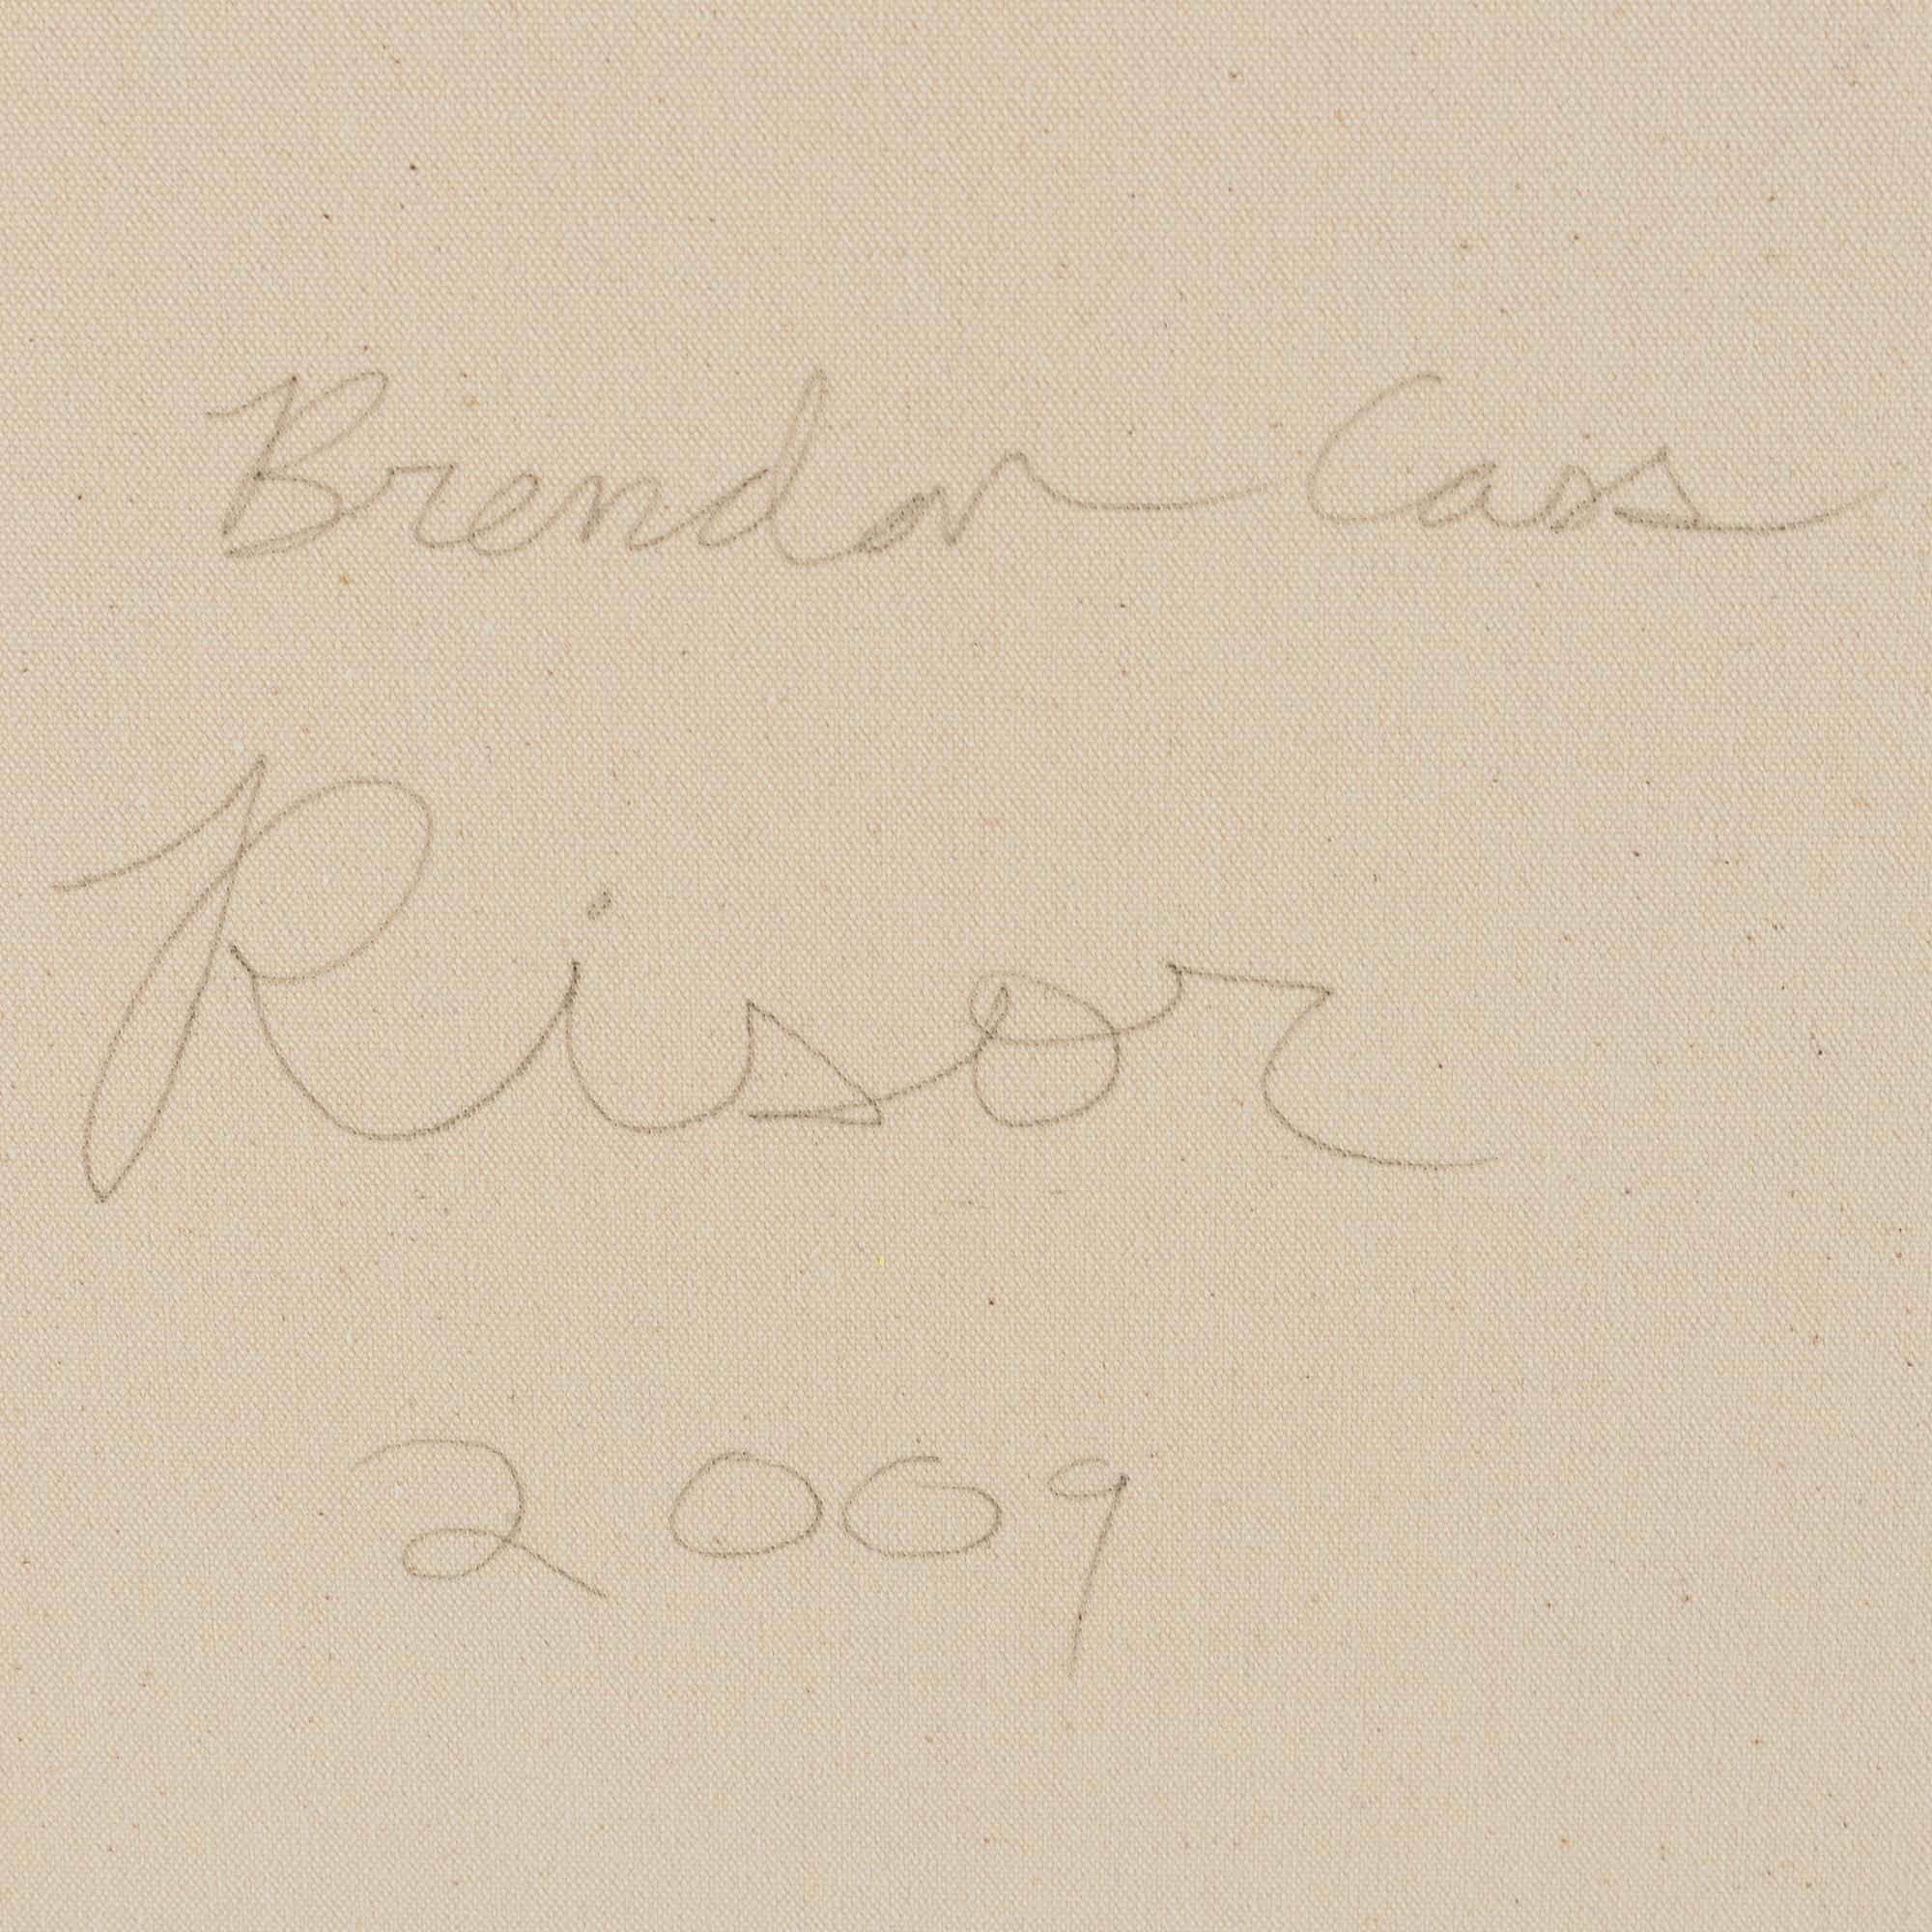 Brendan Cass
Risor
2009